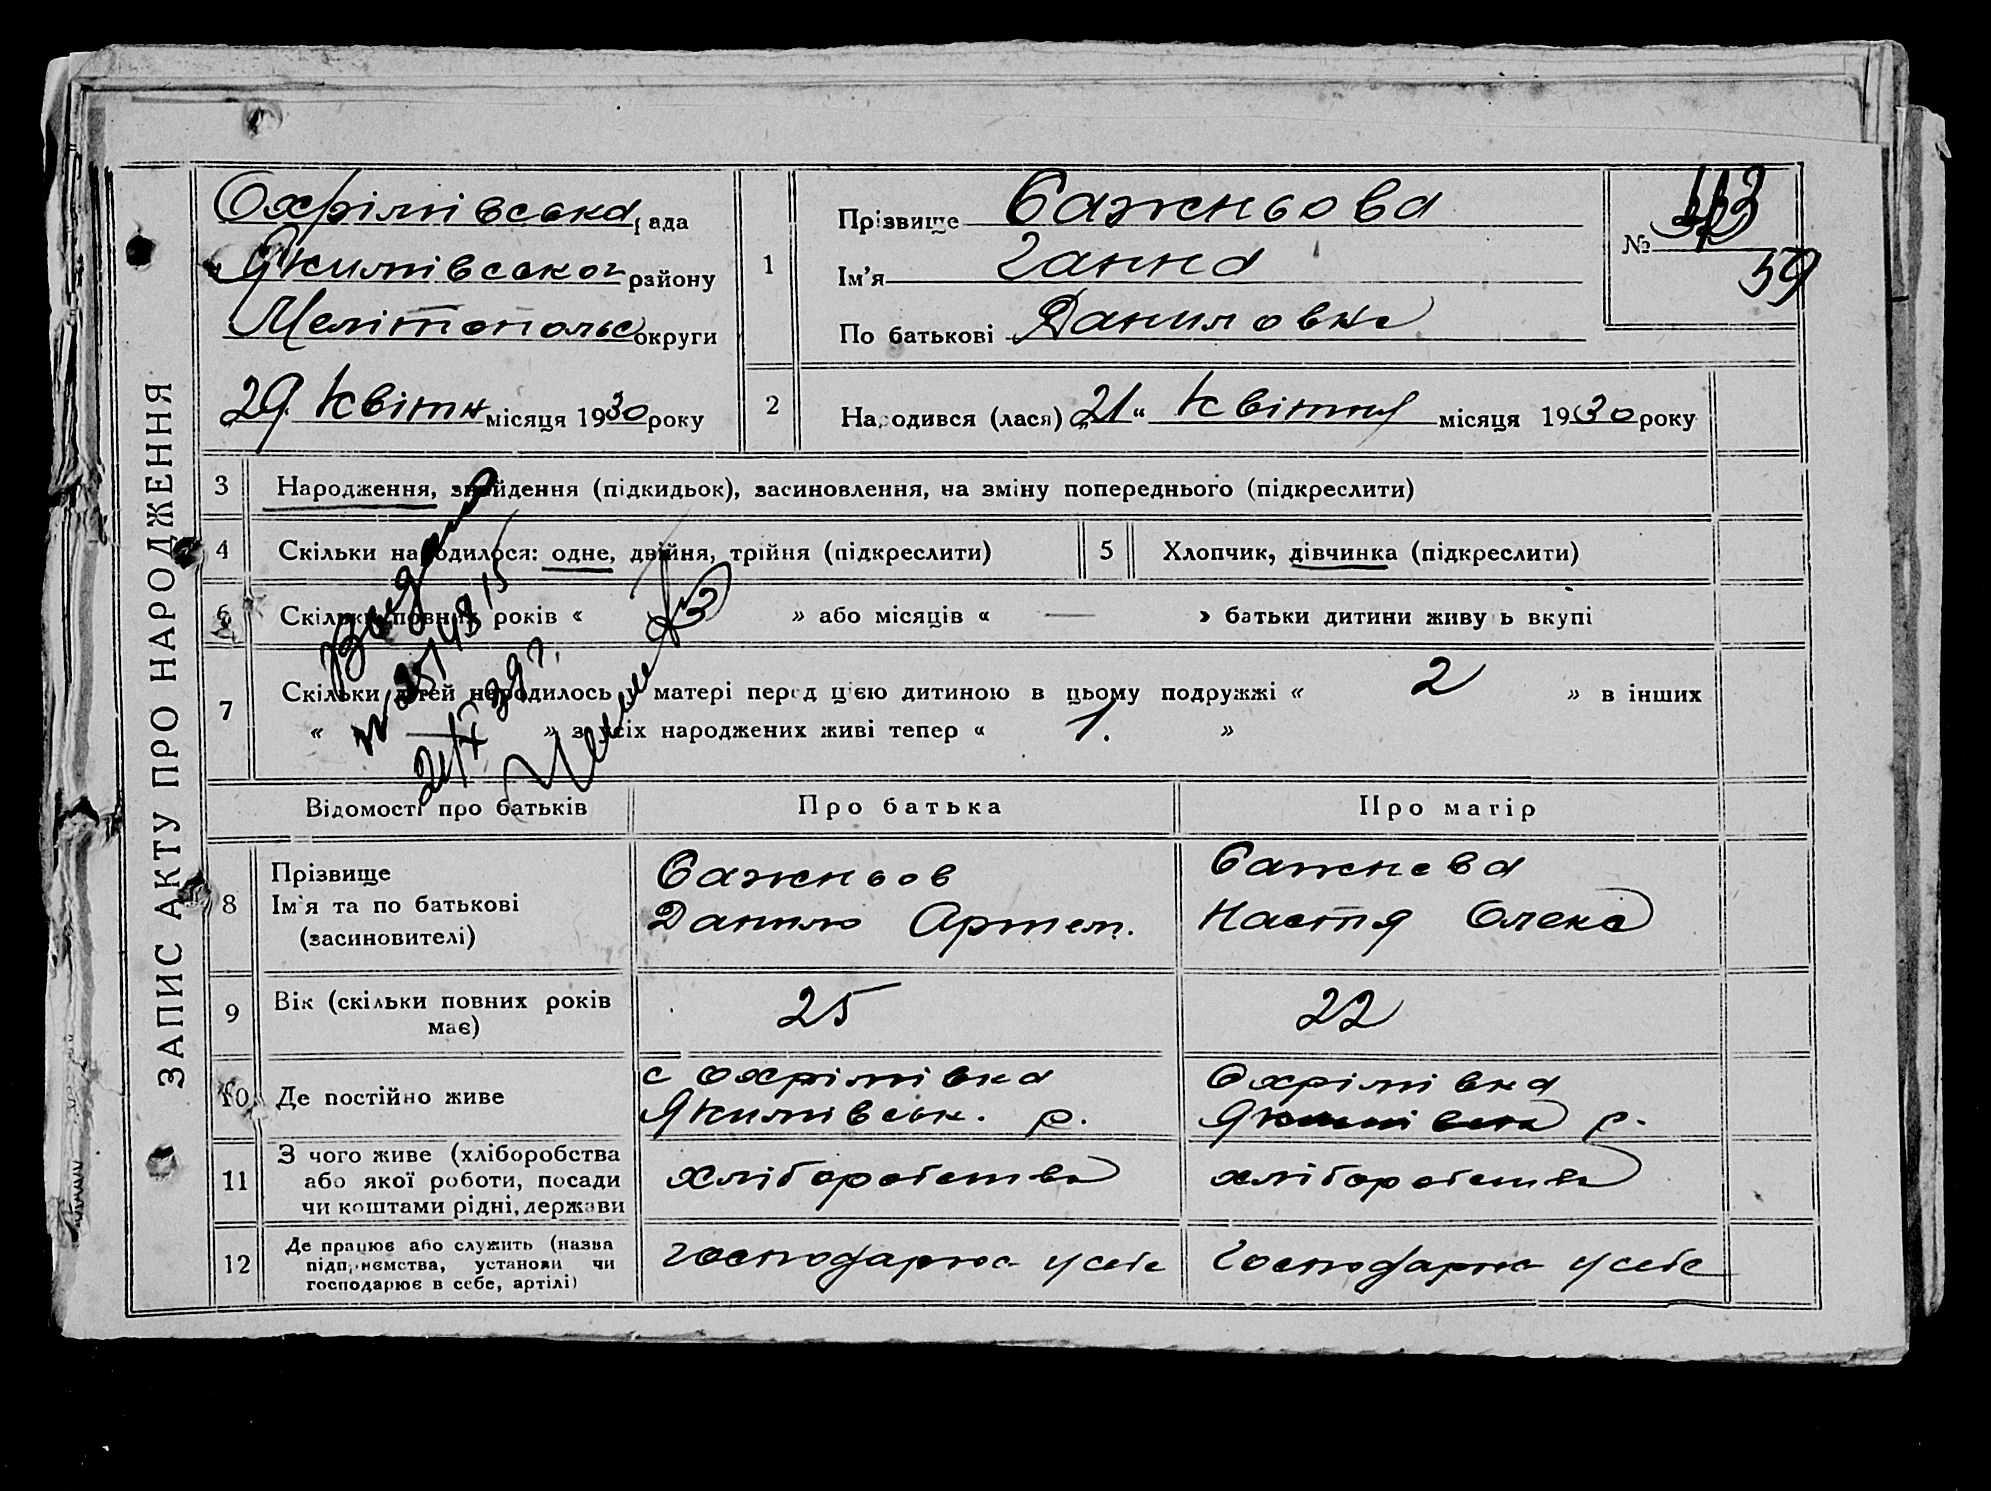 ЗАПИС АКТУ ПРО НАРОДЖЕННЯ
Охрімівська рада
Якимівськог району
Мелітопольс округи
29 Квітн місяця 1930 року
1
Прізвище Сажньова
Ім'я Ганна
По батькові Даниловна
№
59
2
Народився (лася) „21“ Квітня місяця 1930 року
3 Народження, знайдення (підкидьок), засиновлення, на зміну попереднього (підкреслити)
4 Скільки народилося: одне, двійня, трійня (підкреслити)
5 Хлопчик, дівчинка (підкреслити)
6 Скільки повних років « » або місяців « — » батьки дитини живуть вкупі
7 Скільки дітей народилось у матері перед цією дитиною в цьому подружжі « 2 » в інших
« — » з усіх народжених живі тепер « 1. »
Видано
21/X 39 г.
Відомості про батьків Про батька Про матір
8 Прізвище
Ім'я та по батькові
(засиновителі)
Сажньов
Данило Артем.
Сажнева
Настя Олекс
9 Вік (скільки повних років
має)
25
22
10 Де постійно живе
с Охрімівка
Якимівськ. р.
Охрімівка
Якимівська р.
11 З чого живе (хліборобства
або якої роботи, посади
чи коштами рідні, держави
хліборобства
хліборобства
12 Де працює або служить (назва
підприємства, установи чи
господарює в себе, артілі)
Господарює у себе
Господарює у себе